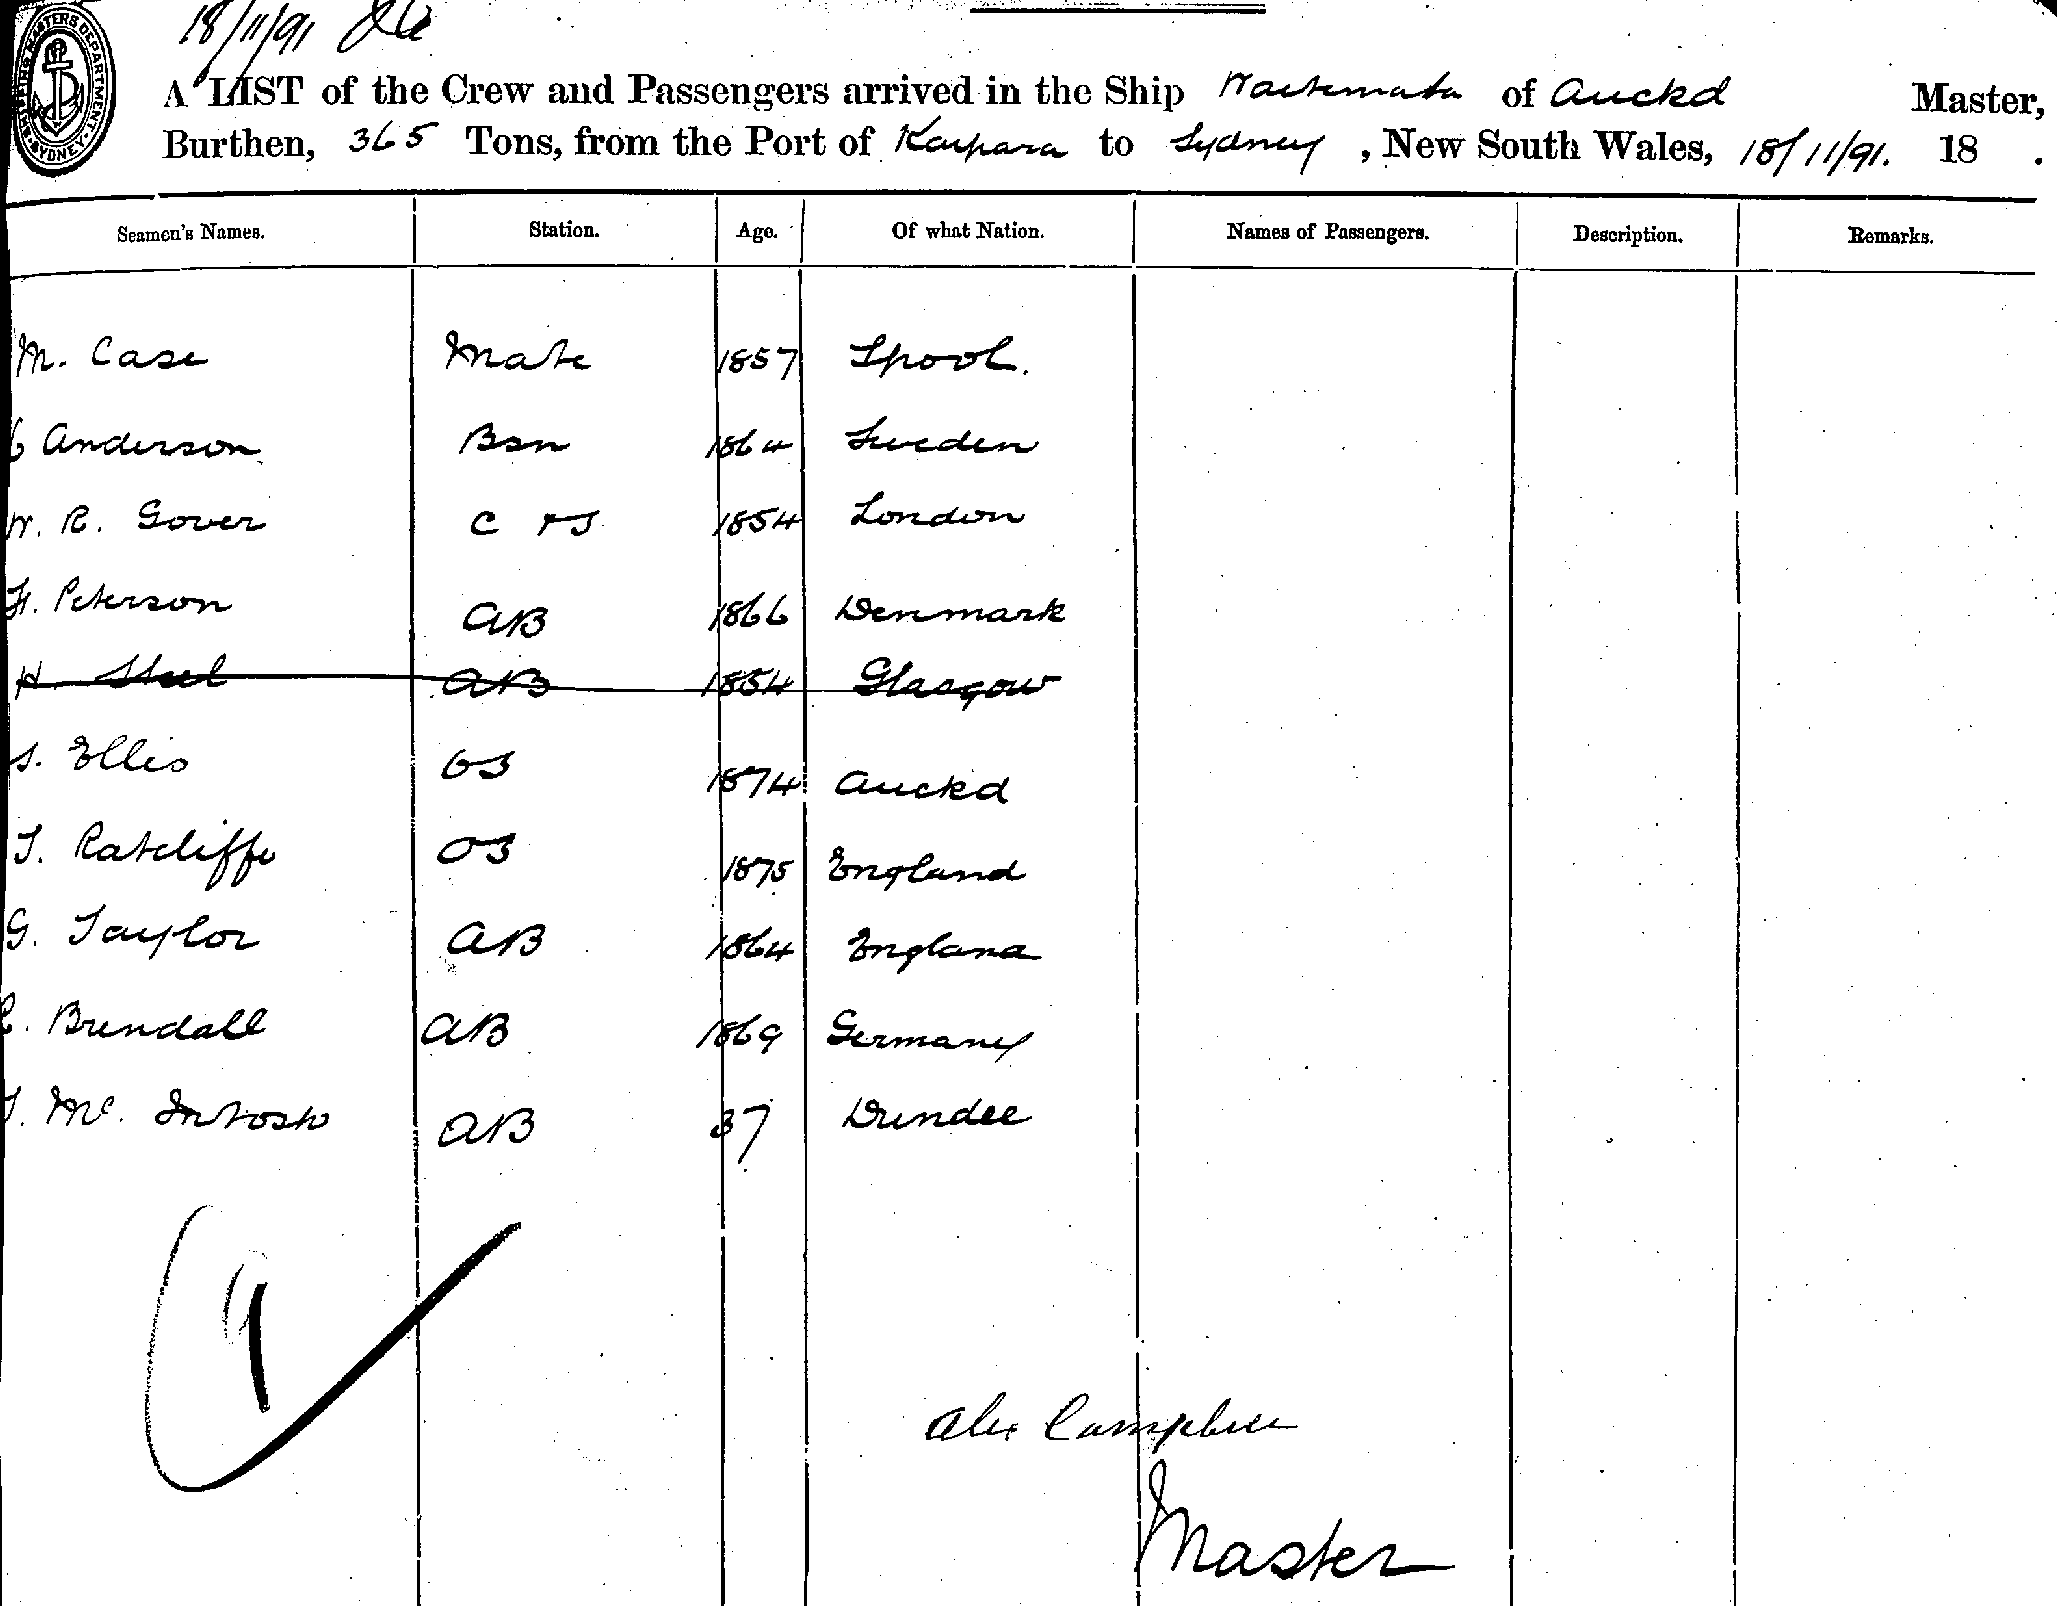 18/11/91
SHIPPING MASTERS DEPARTMENT. SYDNEY
A LIST of the Crew and Passengers arrived in the Ship Waitemata of Auckd Master,
Burthen, 365 Tons, from the Port of Kaipara to Sydney, New South Wales, 18/11/91. 18 .
Seamen's Names. Station. Age. Of what Nation. Names of Passengers. Description. Remarks.
M. Case Mate 1857 Lpool.
Anderson Bsn 1864 Sweden
W. R. Gover C & S 1854 London
H. Peterson AB 1866 Denmark
H. Steel AB 1854 Glasgow
S. Ellis OS 1874 Auckd
T. Ratcliffe OS 1875 England
G. Taylor AB 1864 England
Brendall AB 1869 Germany
T. Mc. Intosh AB 37 Dundee
11
Alex Campbell
Master